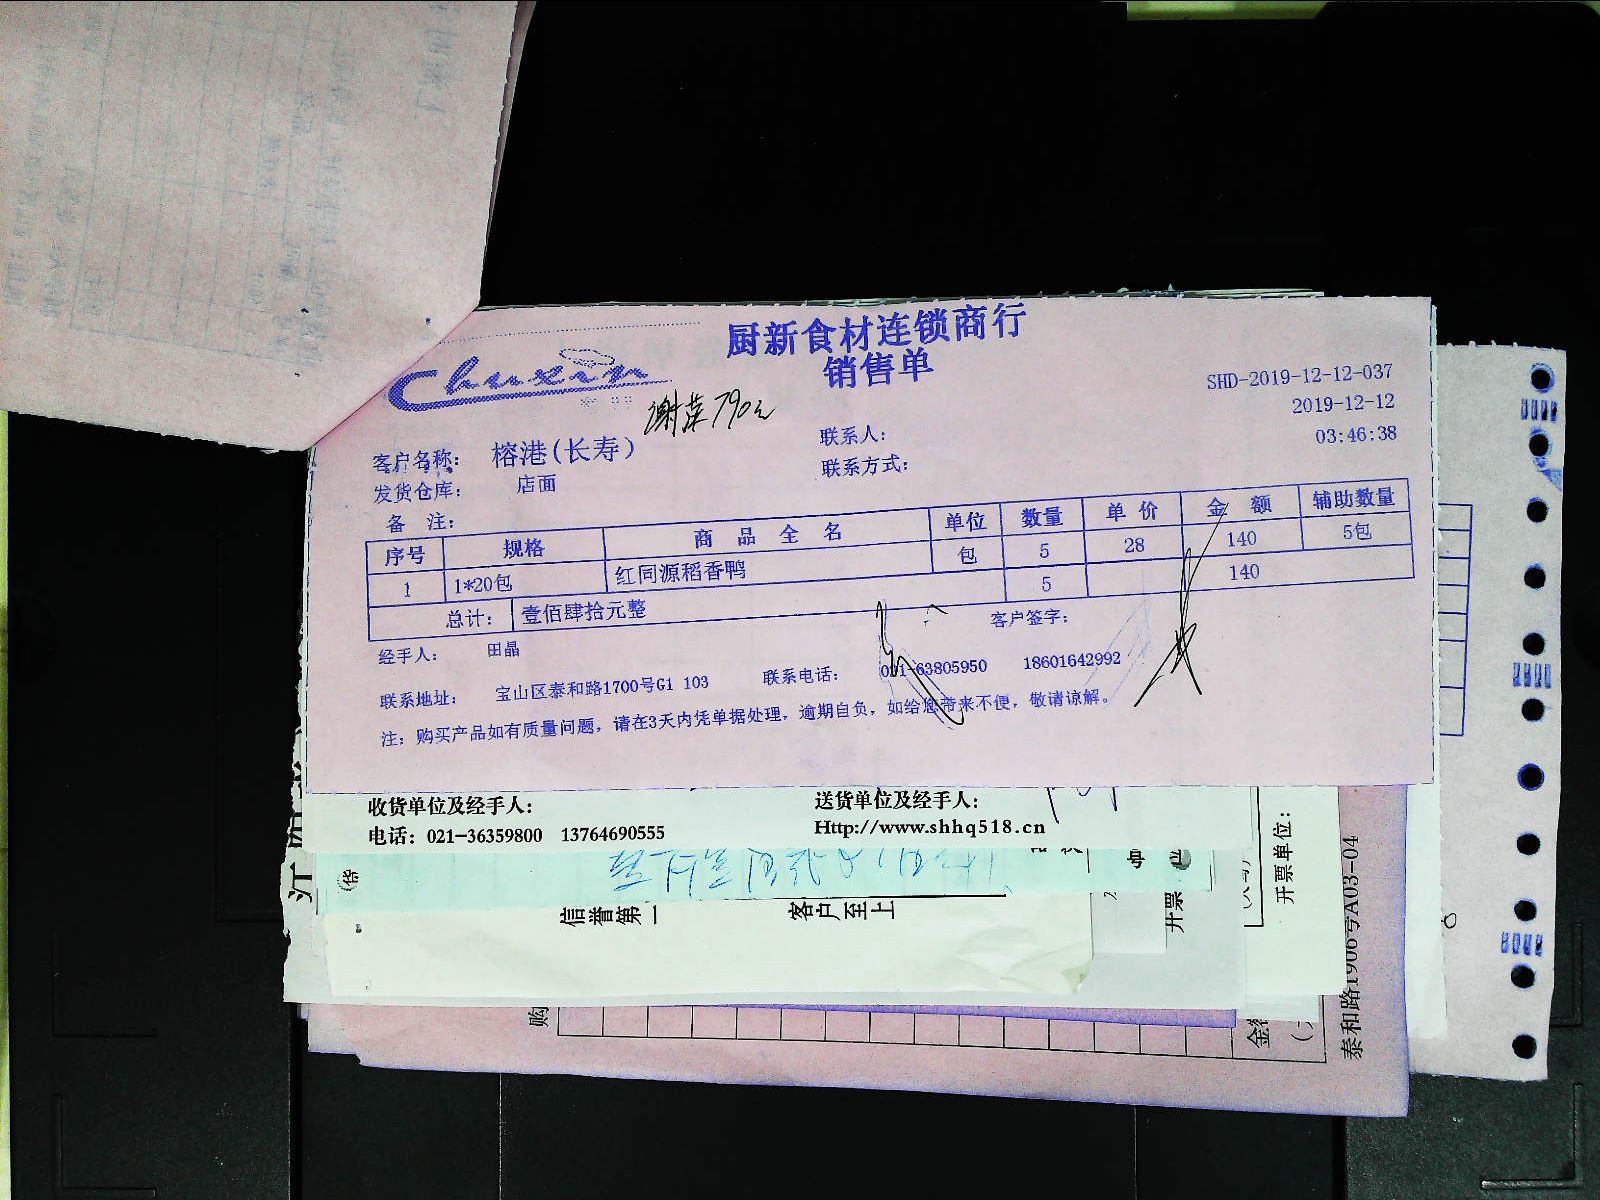 厨新食材连锁商行
销售单
Chuxin
SHD-2019-12-12-037
2019-12-12
03:46:38
790元
客户名称: 榕港(长寿)
联系人:
发货仓库: 店面
联系方式:
备 注:
序号 规格 商 品 全 名 单位 数量 单 价 金 额 辅助数量
1 1*20包 红同源稻香鸭 包 5 28 140 5包
总计: 壹佰肆拾元整 5 140
经手人: 田晶 客户签字:
联系地址: 宝山区泰和路1700号G1 103 联系电话: 021-63805950 18601642992
注: 购买产品如有质量问题, 请在3天内凭单据处理, 逾期自负, 如给您带来不便, 敬请谅解。
收货单位及经手人: 送货单位及经手人:
电话: 021-36359800 13764690555 Http://www.shhq518.cn
信誉第一 客户至上
开票
开票单位:
购
泰和路1906号A03-04